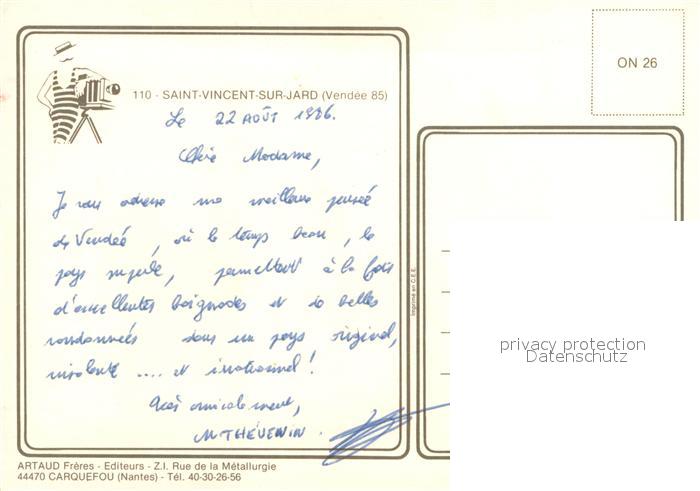 110 - SAINT-VINCENT-SUR-JARD (Vendée 85)
Le 22 AOÛT 1986.
Chère Madame,
Je vous adresse ma meilleure pensée
de Vendée, où le temps beau, le
pays superbe, permettent à la fois
d'excellentes baignades et de belles
randonnées dans un pays original,
insolent .... et irrationnel !
Très amicalement,
M THÉVENIN.
ARTAUD Frères - Editeurs - Z.I. Rue de la Métallurgie
44470 CARQUEFOU (Nantes) - Tél. 40-30-26-56
Imprimé en C.E.E.
ON 26
privacy protection
Datenschutz